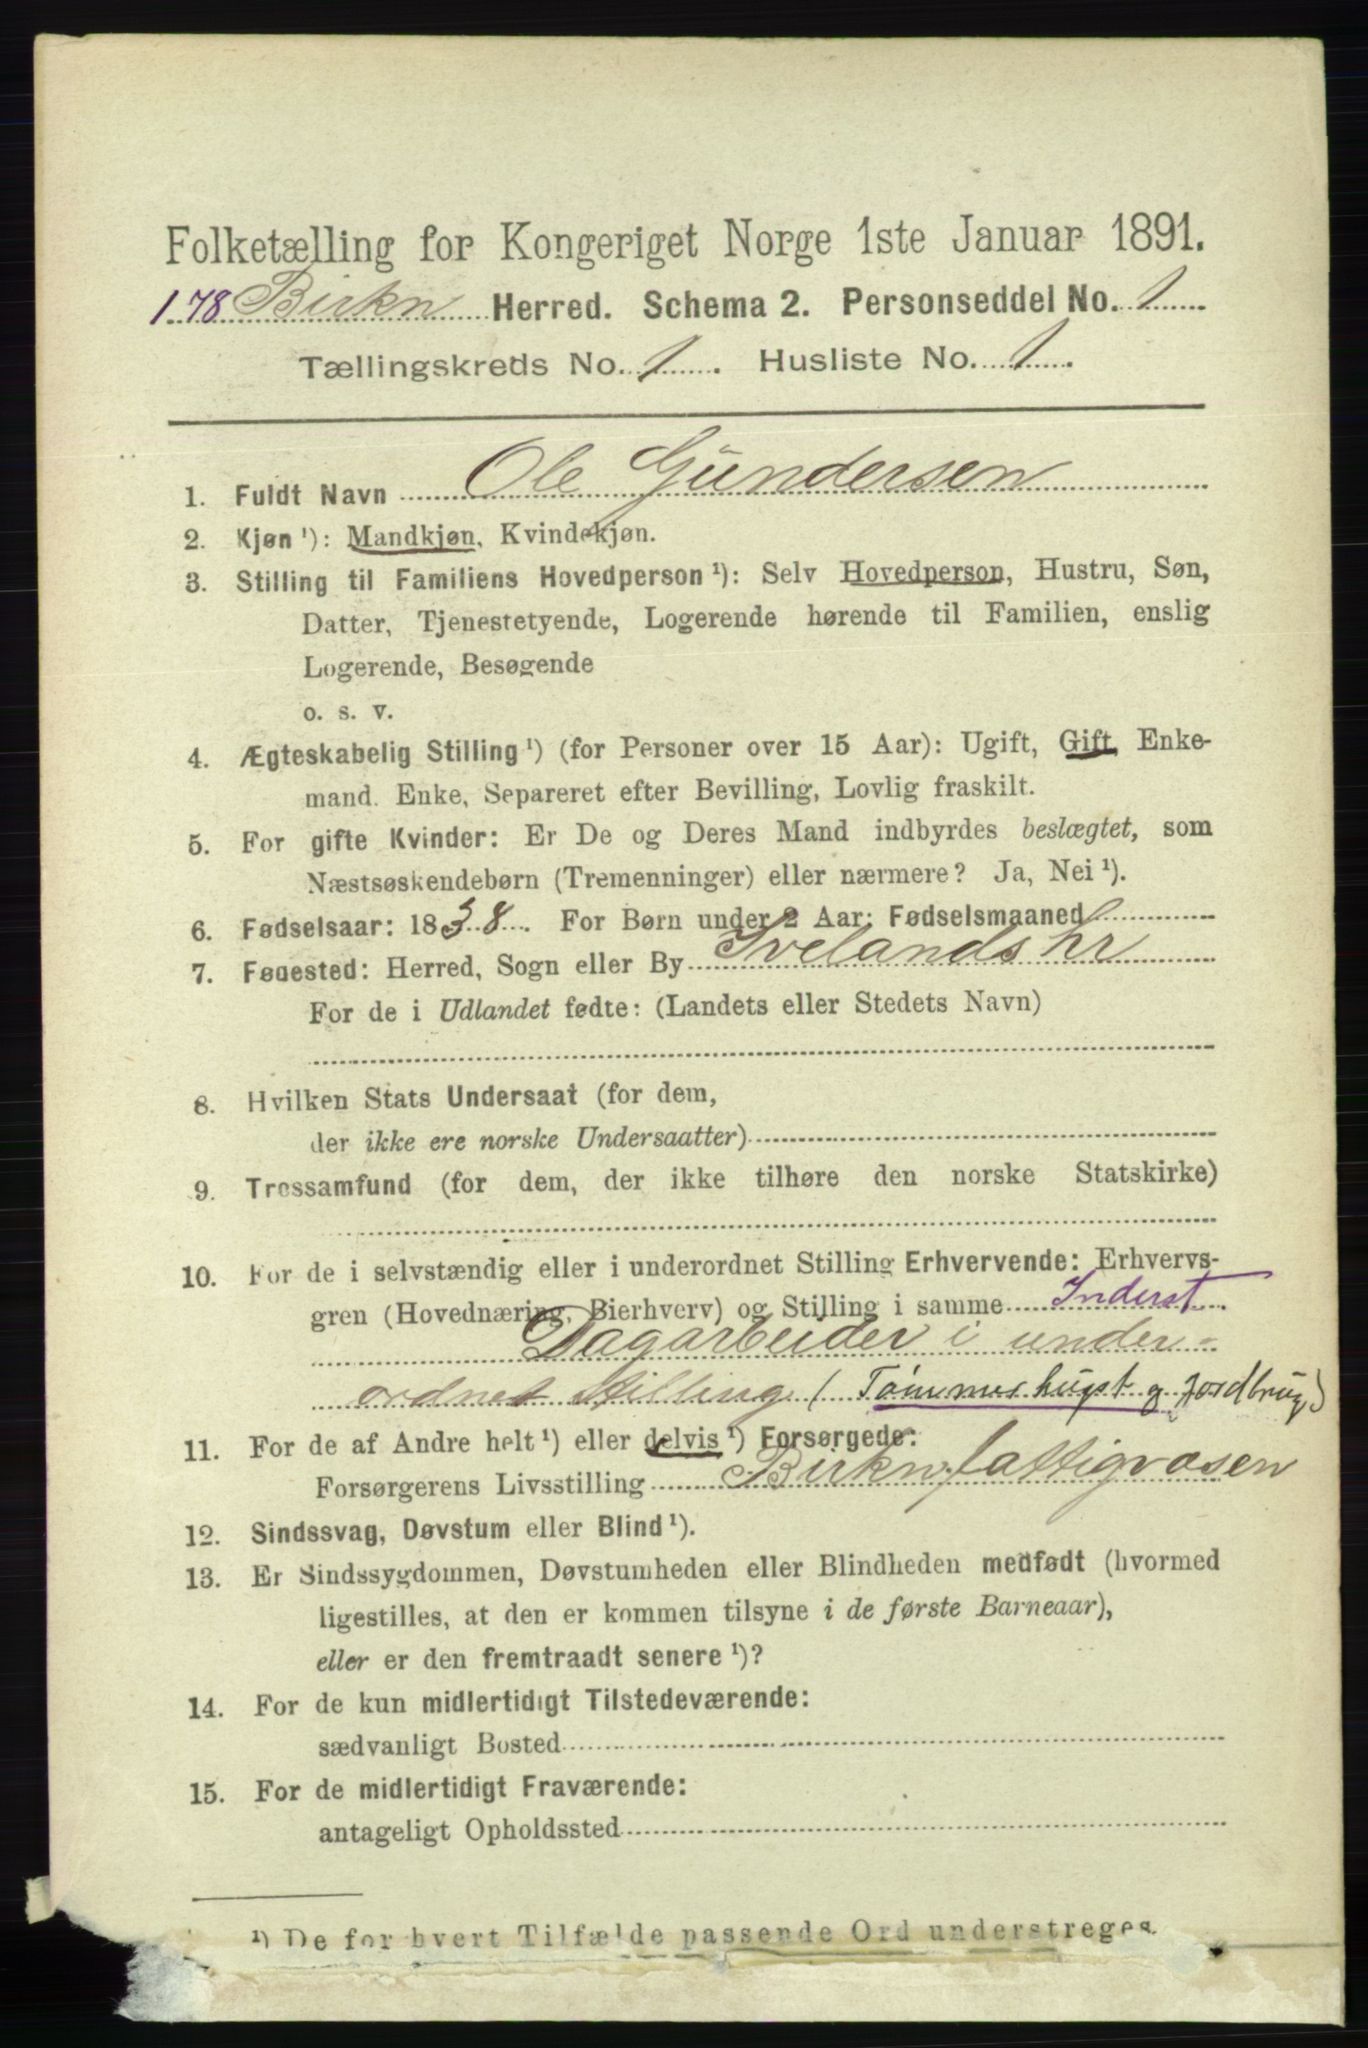 Folketælling for Kongeriget Norge 1ste Januar 1891.
178 Birkn Herred. Schema 2. Personseddel No. 1
Tællingskreds No. 1. Husliste No. 1.
1. Fuldt Navn Ole Gundersen
2. Kjøn ¹): Mandkjøn, Kvindekjøn.
3. Stilling til Familiens Hovedperson ¹): Selv Hovedperson, Hustru, Søn,
Datter, Tjenestetyende, Logerende hørende til Familien, enslig
Logerende, Besøgende
o. s. v.
4. Ægteskabelig Stilling ¹) (for Personer over 15 Aar): Ugift, Gift, Enke-
mand. Enke, Separeret efter Bevilling, Lovlig fraskilt.
5. For gifte Kvinder: Er De og Deres Mand indbyrdes beslægtet, som
Næstsøskendebørn (Tremenninger) eller nærmere? Ja, Nei ¹).
6. Fødselsaar: 1838. For Børn under 2 Aar: Fødselsmaaned
7. Fødested: Herred, Sogn eller By Ivelands hr
For de i Udlandet fødte: (Landets eller Stedets Navn)
8. Hvilken Stats Undersaat (for dem,
der ikke ere norske Undersaatter)
9. Trossamfund (for dem, der ikke tilhøre den norske Statskirke)
10. For de i selvstændig eller i underordnet Stilling Erhvervende: Erhvervs-
gren (Hovednæring, Bierhverv) og Stilling i samme Inderst
Dagarbeider i under-
ordnet Stilling (Tømmerhugst g Jordbrug)
11. For de af Andre helt ¹) eller delvis ¹) Forsørgede:
Forsørgerens Livsstilling Birkn. fattigvæsen
12. Sindssvag, Døvstum eller Blind ¹).
13. Er Sindssygdommen, Døvstumheden eller Blindheden medfødt (hvormed
ligestilles, at den er kommen tilsyne i de første Barneaar),
eller er den fremtraadt senere ¹)?
14. For de kun midlertidigt Tilstedeværende:
sædvanligt Bosted
15. For de midlertidigt Fraværende:
antageligt Opholdssted
¹) De for hvert Tilfælde passende Ord understreges.